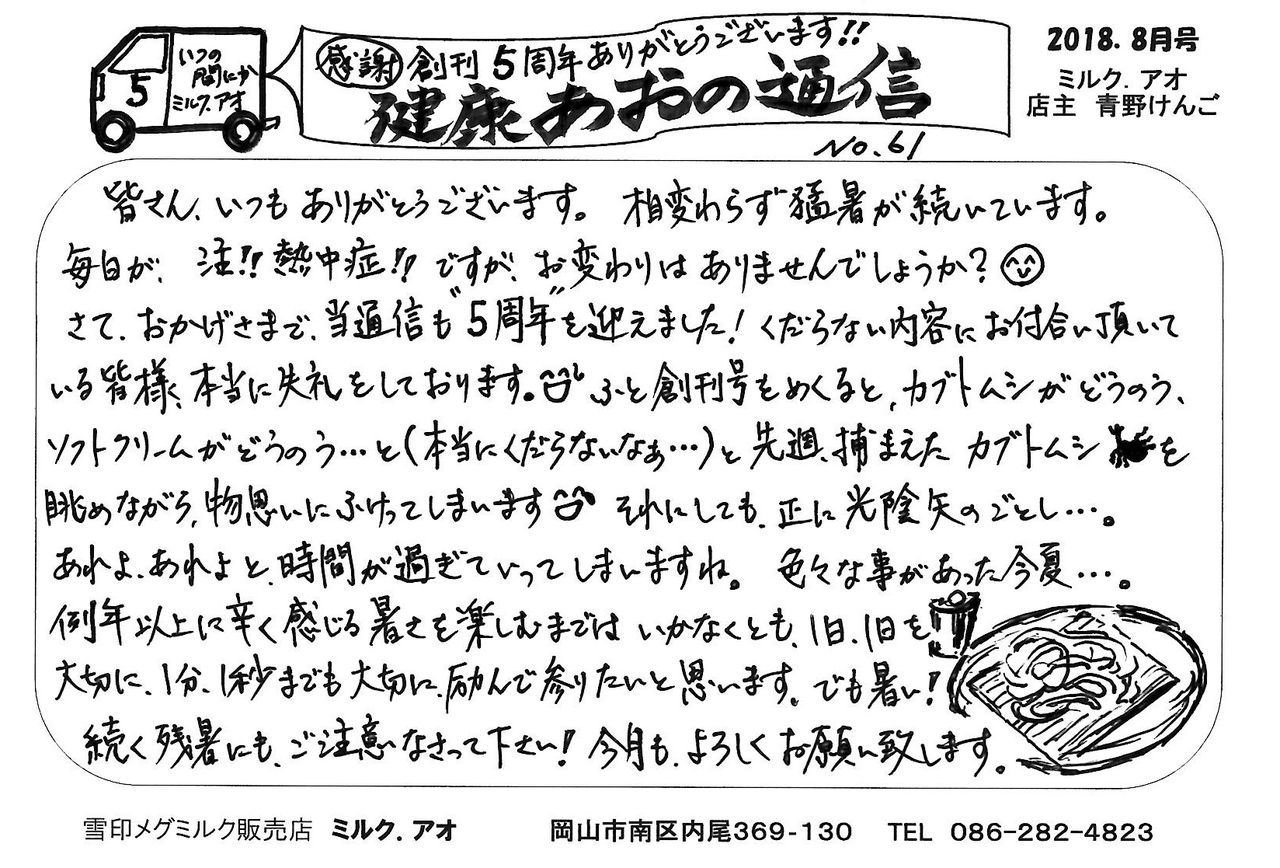 5
いつの
間にか
ミルク.アオ
感謝 創刊5周年ありがとうございます!!
健康あおの通信
No.61
2018.8月号
ミルク.アオ
店主 青野けんご
皆さん、いつもありがとうございます。相変わらず猛暑が続いています。
毎日が、注!!熱中症!!ですが、お変わりはありませんでしょうか?
さて、おかげさまで、当通信も“5周年”を迎えました!くだらない内容にお付合い頂いて
いる皆様、本当に失礼をしております。ふと創刊号をめくると、カブトムシがどうのう、
ソフトクリームがどうのう…と(本当にくだらないなぁ…)と先週、捕まえたカブトムシを
眺めながら、物思いにふけってしまいます それにしても、正に光陰矢のごとし…。
あれよ、あれよと、時間が過ぎていってしまいますね。色々な事があった今夏…。
例年以上に辛く感じる暑さを楽しむまではいかなくとも、1日、1日を
大切に、1分、1秒までも大切に、励んで参りたいと思います。でも暑い!
続く残暑にも、ご注意なさって下さい!今月も、よろしくお願い致します。
雪印メグミルク販売店 ミルク.アオ 岡山市南区内尾369-130 TEL 086-282-4823